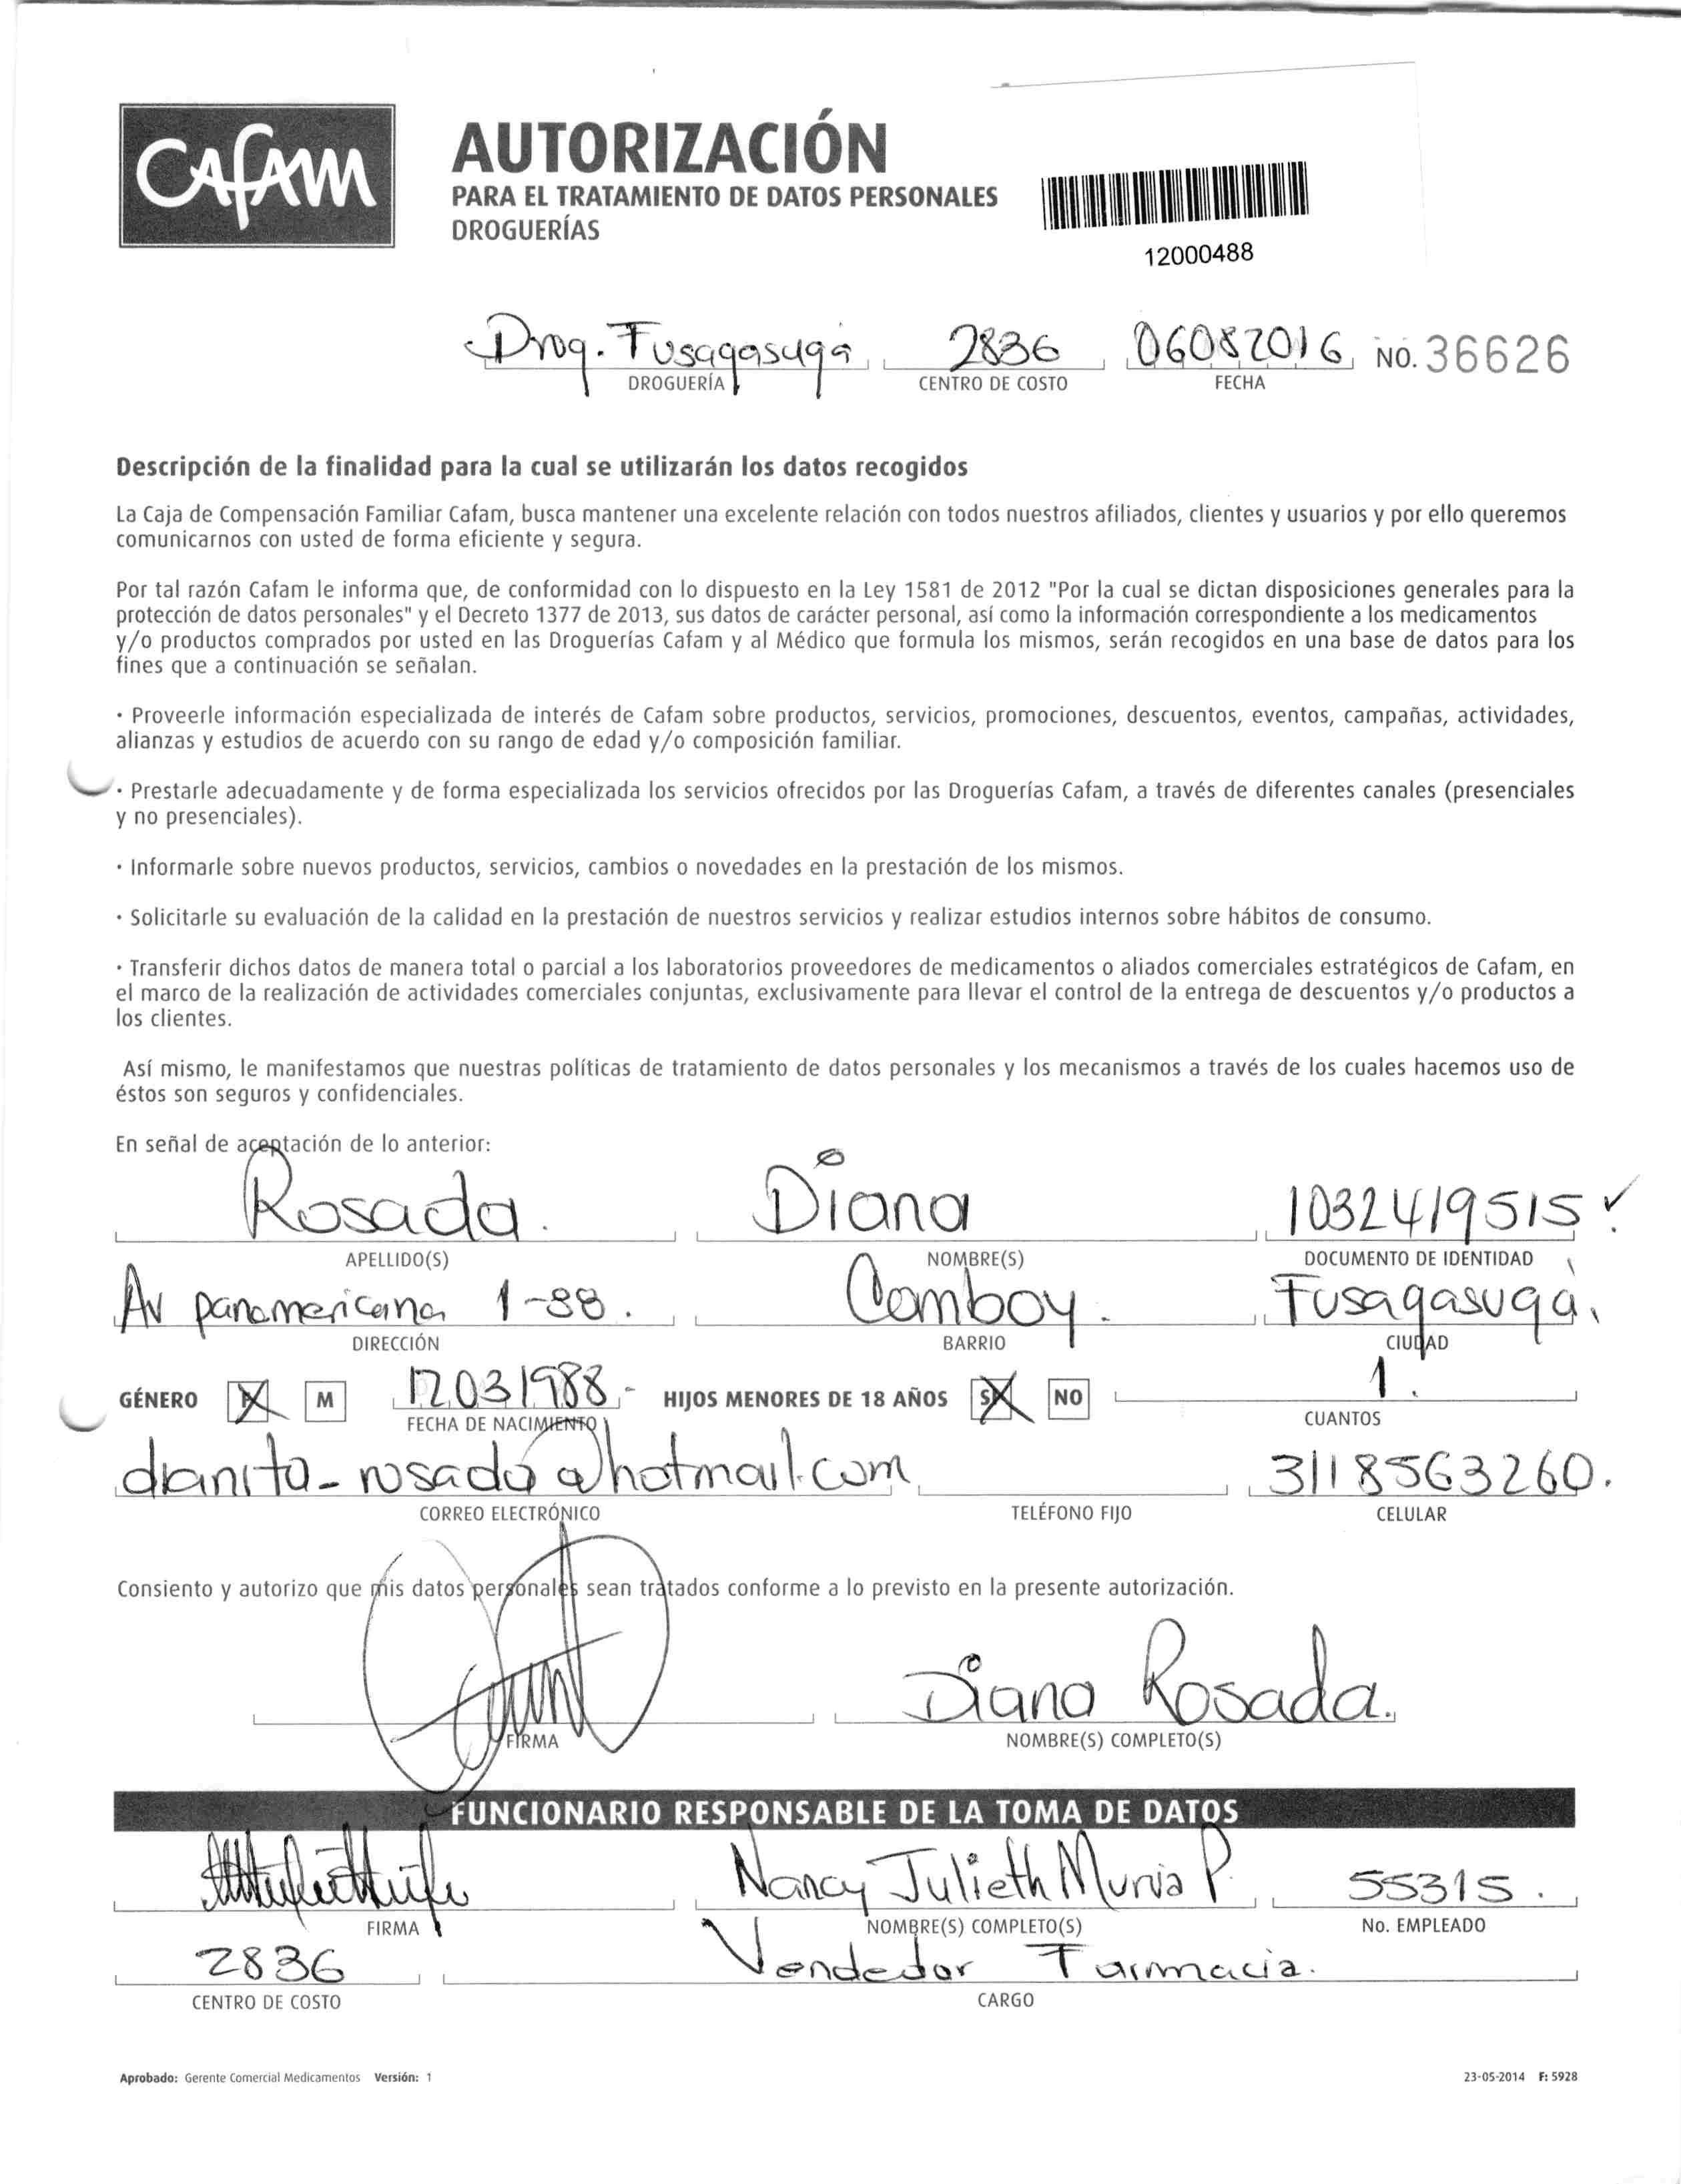 CAFAM
AUTORIZACIÓN
PARA EL TRATAMIENTO DE DATOS PERSONALES
DROGUERÍAS
12000488
Drog. Fusagasuga 2836 06082016 NO. 36626
DROGUERÍA CENTRO DE COSTO FECHA
Descripción de la finalidad para la cual se utilizarán los datos recogidos
La Caja de Compensación Familiar Cafam, busca mantener una excelente relación con todos nuestros afiliados, clientes y usuarios y por ello queremos
comunicarnos con usted de forma eficiente y segura.
Por tal razón Cafam le informa que, de conformidad con lo dispuesto en la Ley 1581 de 2012 "Por la cual se dictan disposiciones generales para la
protección de datos personales" y el Decreto 1377 de 2013, sus datos de carácter personal, así como la información correspondiente a los medicamentos
y/o productos comprados por usted en las Droguerías Cafam y al Médico que formula los mismos, serán recogidos en una base de datos para los
fines que a continuación se señalan.
· Proveerle información especializada de interés de Cafam sobre productos, servicios, promociones, descuentos, eventos, campañas, actividades,
alianzas y estudios de acuerdo con su rango de edad y/o composición familiar.
· Prestarle adecuadamente y de forma especializada los servicios ofrecidos por las Droguerías Cafam, a través de diferentes canales (presenciales
y no presenciales).
· Informarle sobre nuevos productos, servicios, cambios o novedades en la prestación de los mismos.
· Solicitarle su evaluación de la calidad en la prestación de nuestros servicios y realizar estudios internos sobre hábitos de consumo.
· Transferir dichos datos de manera total o parcial a los laboratorios proveedores de medicamentos o aliados comerciales estratégicos de Cafam, en
el marco de la realización de actividades comerciales conjuntas, exclusivamente para llevar el control de la entrega de descuentos y/o productos a
los clientes.
Así mismo, le manifestamos que nuestras políticas de tratamiento de datos personales y los mecanismos a través de los cuales hacemos uso de
éstos son seguros y confidenciales.
En señal de aceptación de lo anterior:
Rosada. Diana 1032419515
APELLIDO(S) NOMBRE(S) DOCUMENTO DE IDENTIDAD
Av panamericana 1-88. Comboy. Fusagasuga.
DIRECCIÓN BARRIO CIUDAD
GÉNERO M 12031988 HIJOS MENORES DE 18 AÑOS SI NO 1.
FECHA DE NACIMIENTO CUANTOS
dianita_rosada@hotmail.com 3118563260.
CORREO ELECTRÓNICO TELÉFONO FIJO CELULAR
Consiento y autorizo que mis datos personales sean tratados conforme a lo previsto en la presente autorización.
Diana Rosada.
FIRMA NOMBRE(S) COMPLETO(S)
FUNCIONARIO RESPONSABLE DE LA TOMA DE DATOS
Nancy Julieth P. 55315.
FIRMA NOMBRE(S) COMPLETO(S) No. EMPLEADO
2836 Vendedor Farmacia.
CENTRO DE COSTO CARGO
Aprobado: Gerente Comercial Medicamentos Versión: 1 23-05-2014 F: 5928